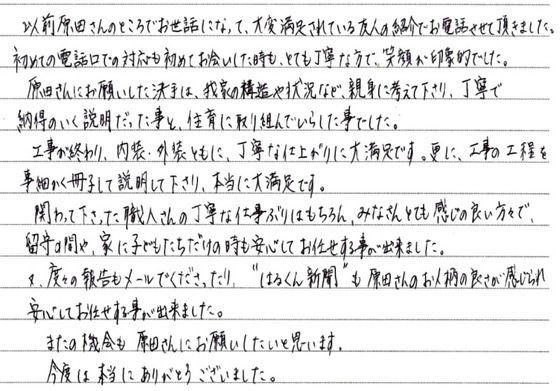 以前原田さんのところでお世話になって、大変満足されている友人の紹介でお電話させて頂きました。
初めての電話口での対応も初めてお会いした時も、とても丁寧な方で、笑顔が印象的でした。
原田さんにお願いした決手は、我家の構造や状況など、親身に考えて下さり、丁寧で
納得のいく説明だった事と、住育に取り組んでいらした事でした。
工事が終わり、内装・外装ともに、丁寧な仕上がりに大満足です。更に、工事の工程を
事細かく冊子して説明して下さり、本当に大満足です。
関わって下さった職人さんの丁寧な仕事ぶりはもちろん、みなさんとても感じの良い方々で、
留守の間や、家に子どもたちだけの時も安心してお任せする事が出来ました。
又、度々の報告もメールでくださったり、“はるくん新聞”も原田さんのお人柄の良さが感じられ
安心してお任せする事が出来ました。
またの機会も原田さんにお願いしたいと思います。
今度は本当にありがとうございました。